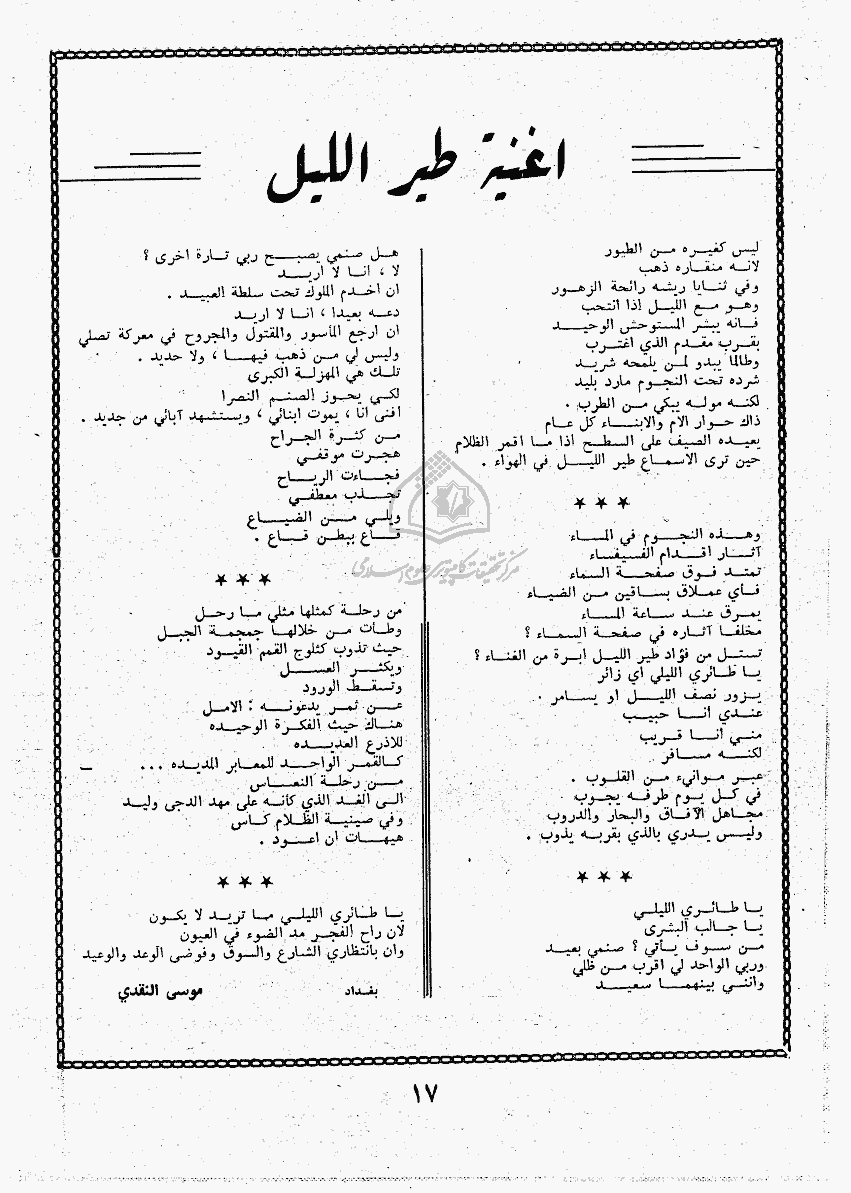 اغنية طير الليل
ليس كغيره من الطيور
لانه منقاره ذهب
وفي ثنايا ريشه رائحة الزهور
وهو مع الليل إذا انتحب
فانه يبشر المستوحش الوحيد
بقرب مقدم الذي اغترب
وطالما يبدو لمن يلمحه شريد
شرده تحت النجوم مارد بليد
لكنه موله يبكي من الطرب .
ذاك حوار الام والابناء كل عام
يعيده الصيف على السطح اذا ما اقمر الظلام
حين ترى الاسماع طير الليل في الهواء .
★ ★ ★
وهذه النجوم في الماء
آثار اقدام الفسيفساء
تمتد فوق صفحة السماء
فاي عملاق بساقين من الضياء
يمرق عند ساعة المساء
مخلفا آثاره في صفحة السماء ؟
تستل من فؤاد طير الليل ابرة من الغناء ؟
يا طائري الليلي اي زائر
يزور نصف الليل او يسامر .
عندي انا حبيب
مني انا قريب
لكنه مسافر
عبر موانيء من القلوب .
في كل يوم طرفه يجوب
مجاهل الآفاق والبحار والدروب
وليس يدري بالذي بقربه يذوب .
★ ★ ★
يا طائري الليلي
يا جالب البشرى
من سوف يأتي ؟ صنمي بعيد
وربي الواحد لي اقرب من ظلي
وانني بينهما سعيد
هل صنمي يصبح ربي تارة اخرى ؟
لا ، انا لا اريد
ان اخدم الملوك تحت سلطة العبيد .
دعه بعيدا ، انا لا اريد
ان ارجع المأسور والمقتول والمجروح في معركة تصلي
وليس لي من ذهب فيها ، ولا حديد .
تلك هي المهزلة الكبرى
لكي يحوز الصنم النصرا
افنى انا ، يموت ابنائي ، ويستشهد آبائي من جديد .
من كثرة الجراح
هجرت موقفي
فجاءت الرياح
تجذب معطفي
ويلي من الضياع
قاع ببطن قاع .
★ ★ ★
من رحلة كمثلها مثلي ما رحل
وطأت من خلالها جمجمة الجبل
حيث تذوب كثلوج القمم القيود
ويكثر العسل
وتسقط الورود
عن ثمر يدعونه : الامل
هناك حيث الفكرة الوحيده
للاذرع العديده
كالقمر الواحد للمعابر المديده ... –
من رحلة النعاس
الى الغد الذي كانه على مهد الدجى وليد
وفي صينية الظلام كاس
هيهات ان اعود .
★ ★ ★
يا طائري الليلي ما تريد لا يكون
لان راح الفجر مد الضوء في العيون
وان بانتظاري الشارع والسوق وفوضى الوعد والوعيد
بغداد موسى النقدي
١٧